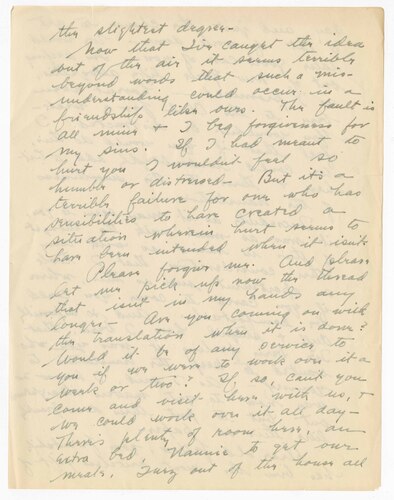 the slightest degree -
Now that I've caught the idea
out of the air it seems terrible
beyond words that such a mis-
understanding could occur in a
friendship like ours. The fault is
all mine & I beg forgiveness for
my sins. If I had meant to
hurt you I wouldn't feel so
humble or distressed - But it's a
terrible failure for one who has
sensibilities to have created a
situation wherein hurt seems to
have been intended when it isn't.
Please forgive me. And please
let me pick up now the thread
that isn't in my hands any
longer - Are you coming on with
the translation when it is done?
Would it be of any service to
you if we were to work over it a
week or two? If so, can't you
come and visit here with us, &
we could work over it all day -
There's plenty of room here, an
extra bed, Nannie to get our
meals. Suzy out of the house all